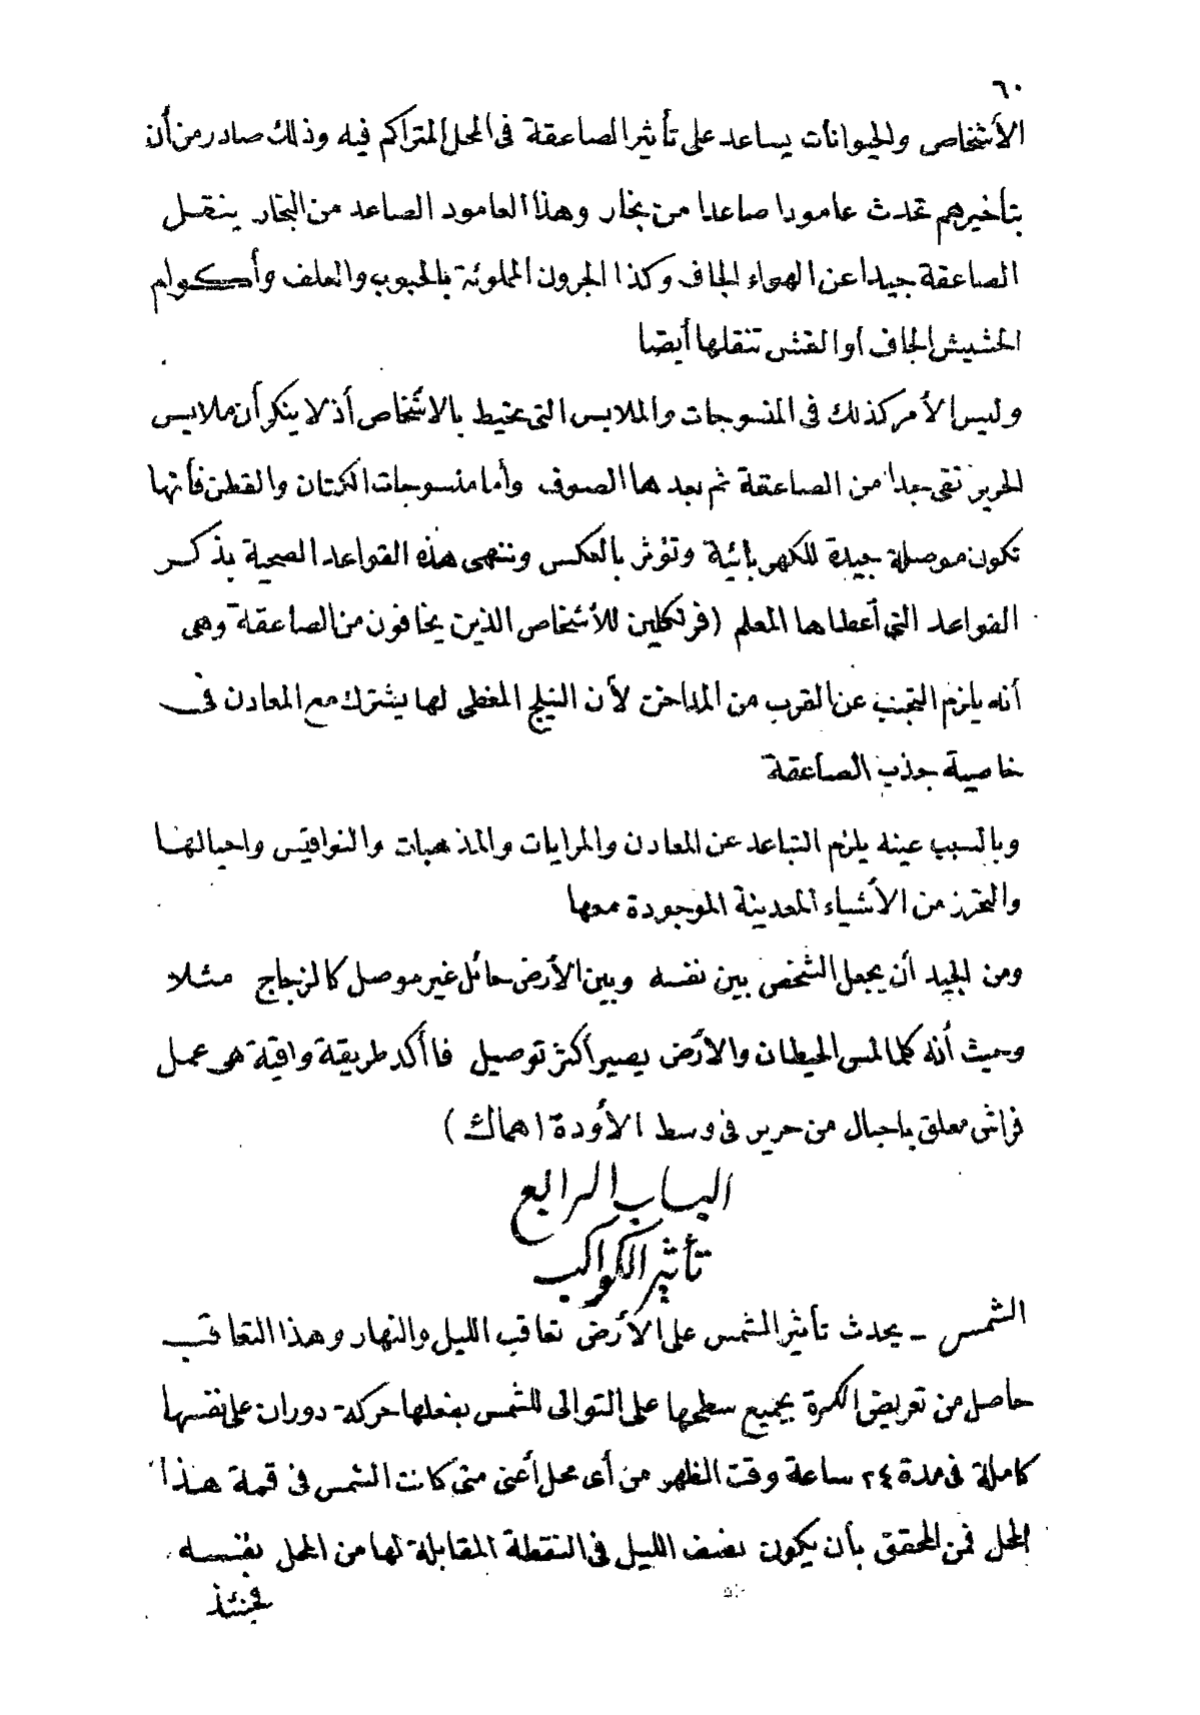 ٦٠
الأشخاص والحيوانات يساعد على تأثير الصاعقة فى المحل المتراكم فيه وذلك صادر من أن
بتأخيرهم تحدث عامودا صاعدا من بخار وهذا العامود الصاعد من البخار ينقل
الصاعقة جيدا عن الهواء الجاف وكذا الجرون المملوئة بالحبوب والعلف وأكوام
الحشيش الجاف أو القش تنقلها أيضا
وليس الأمر كذلك فى المنسوجات والملابس التى تحيط بالاشخاص أذ لا ينكر أن ملابس
الحرير تقى جدا من الصاعقة ثم بعدها الصوف وأما منسوجات الكتان والقطن فأنها
تكون موصلة جيدة للكهربائية وتؤثر بالعكس وننهى هذه القواعد الصحية بذكر
القواعد التى أعطاها المعلم (فرنكلين للأشخاص الذين يخافون من الصاعقة وهى
أنه يلزم التجنب عن القرب من المداخن لأن النيلج المغطى لها يشترك مع المعادن فى
خاصية جذب الصاعقة
وبالسبب عينه يلزم التباعد عن المعادن والمرايات والمذهبات والنواقيس واحبالها
والتحرز من الأشياء المعدينة الموجودة معها
ومن الجيد أن يجعل الشخص بين نفسه وبين الأرض حائل غير موصل كالزجاج مثلا
وحيث أنه كلما لمس الحيطان والأرض يصير أكثر توصيل فاأكد طريقة واقية هى عمل
فراش معلق باحبال من حرير فى وسط الأودة (هماك)
الباب الرابع
تأثير الكواكب
الشمس – يحدث تأثير الشمس على الأرض تعاقب الليل والنهار وهذا التعاقب
حاصل من تعريض الكرة بجميع سطحها على التوالى للشمس بفعلها حركة دوران على نفسها
كاملة فى مدة ٢٤ ساعة وقت الظهر من أى محل أعنى متى كانت الشمس فى قمة هذا
المحل فمن المحقق بأن يكون نصف الليل فى النقطة المقابلة لها من المحل بنفسه
فحينئذ